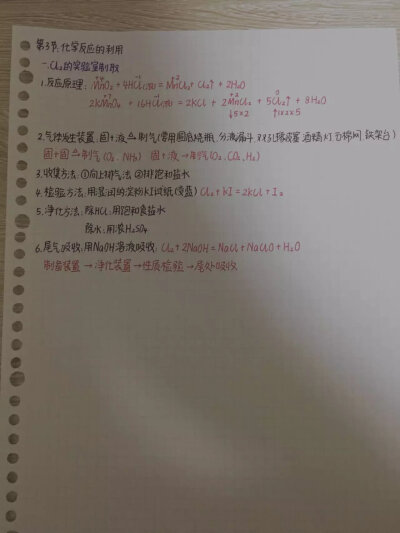 第3节 化学反应的利用
一.Cl₂的实验室制取
1.反应原理: MnO₂ + 4HCl(浓) △= MnCl₂ + Cl₂↑ + 2H₂O
2KMnO₄ + 16HCl(浓) = 2KCl + 2MnCl₂ + 5Cl₂↑ + 8H₂O
↓5×2 ↑1×2×5
2.气体发生装置: 固+液 △→ 制气(常用圆底烧瓶、分液漏斗、双孔橡皮塞、酒精灯、石棉网、铁架台)
固+固 △→ 制气(O₂、NH₃) 固+液→制气(O₂、CO₂、H₂)
3.收集方法: ①向上排气法 ②排饱和食盐水
4.检验方法: 用湿润的淀粉KI试纸(变蓝) Cl₂+KI=2KCl+I₂
5.净化方法: 除HCl: 用饱和食盐水
除水: 用浓H₂SO₄
6.尾气吸收: 用NaOH溶液吸收: Cl₂+2NaOH=NaCl+NaClO+H₂O
制备装置→净化装置→性质检验→尾处吸收